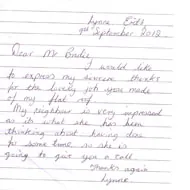 Lynne Entes
9th September 2012
Dear Mr
I would like
to express my sincere thanks
for the lovely job you made
of my flat roof.
My neighbour is very impressed
as its what she has been
thinking about having done
for some time, so she is
going to give you a call.
Thanks again
Lynne